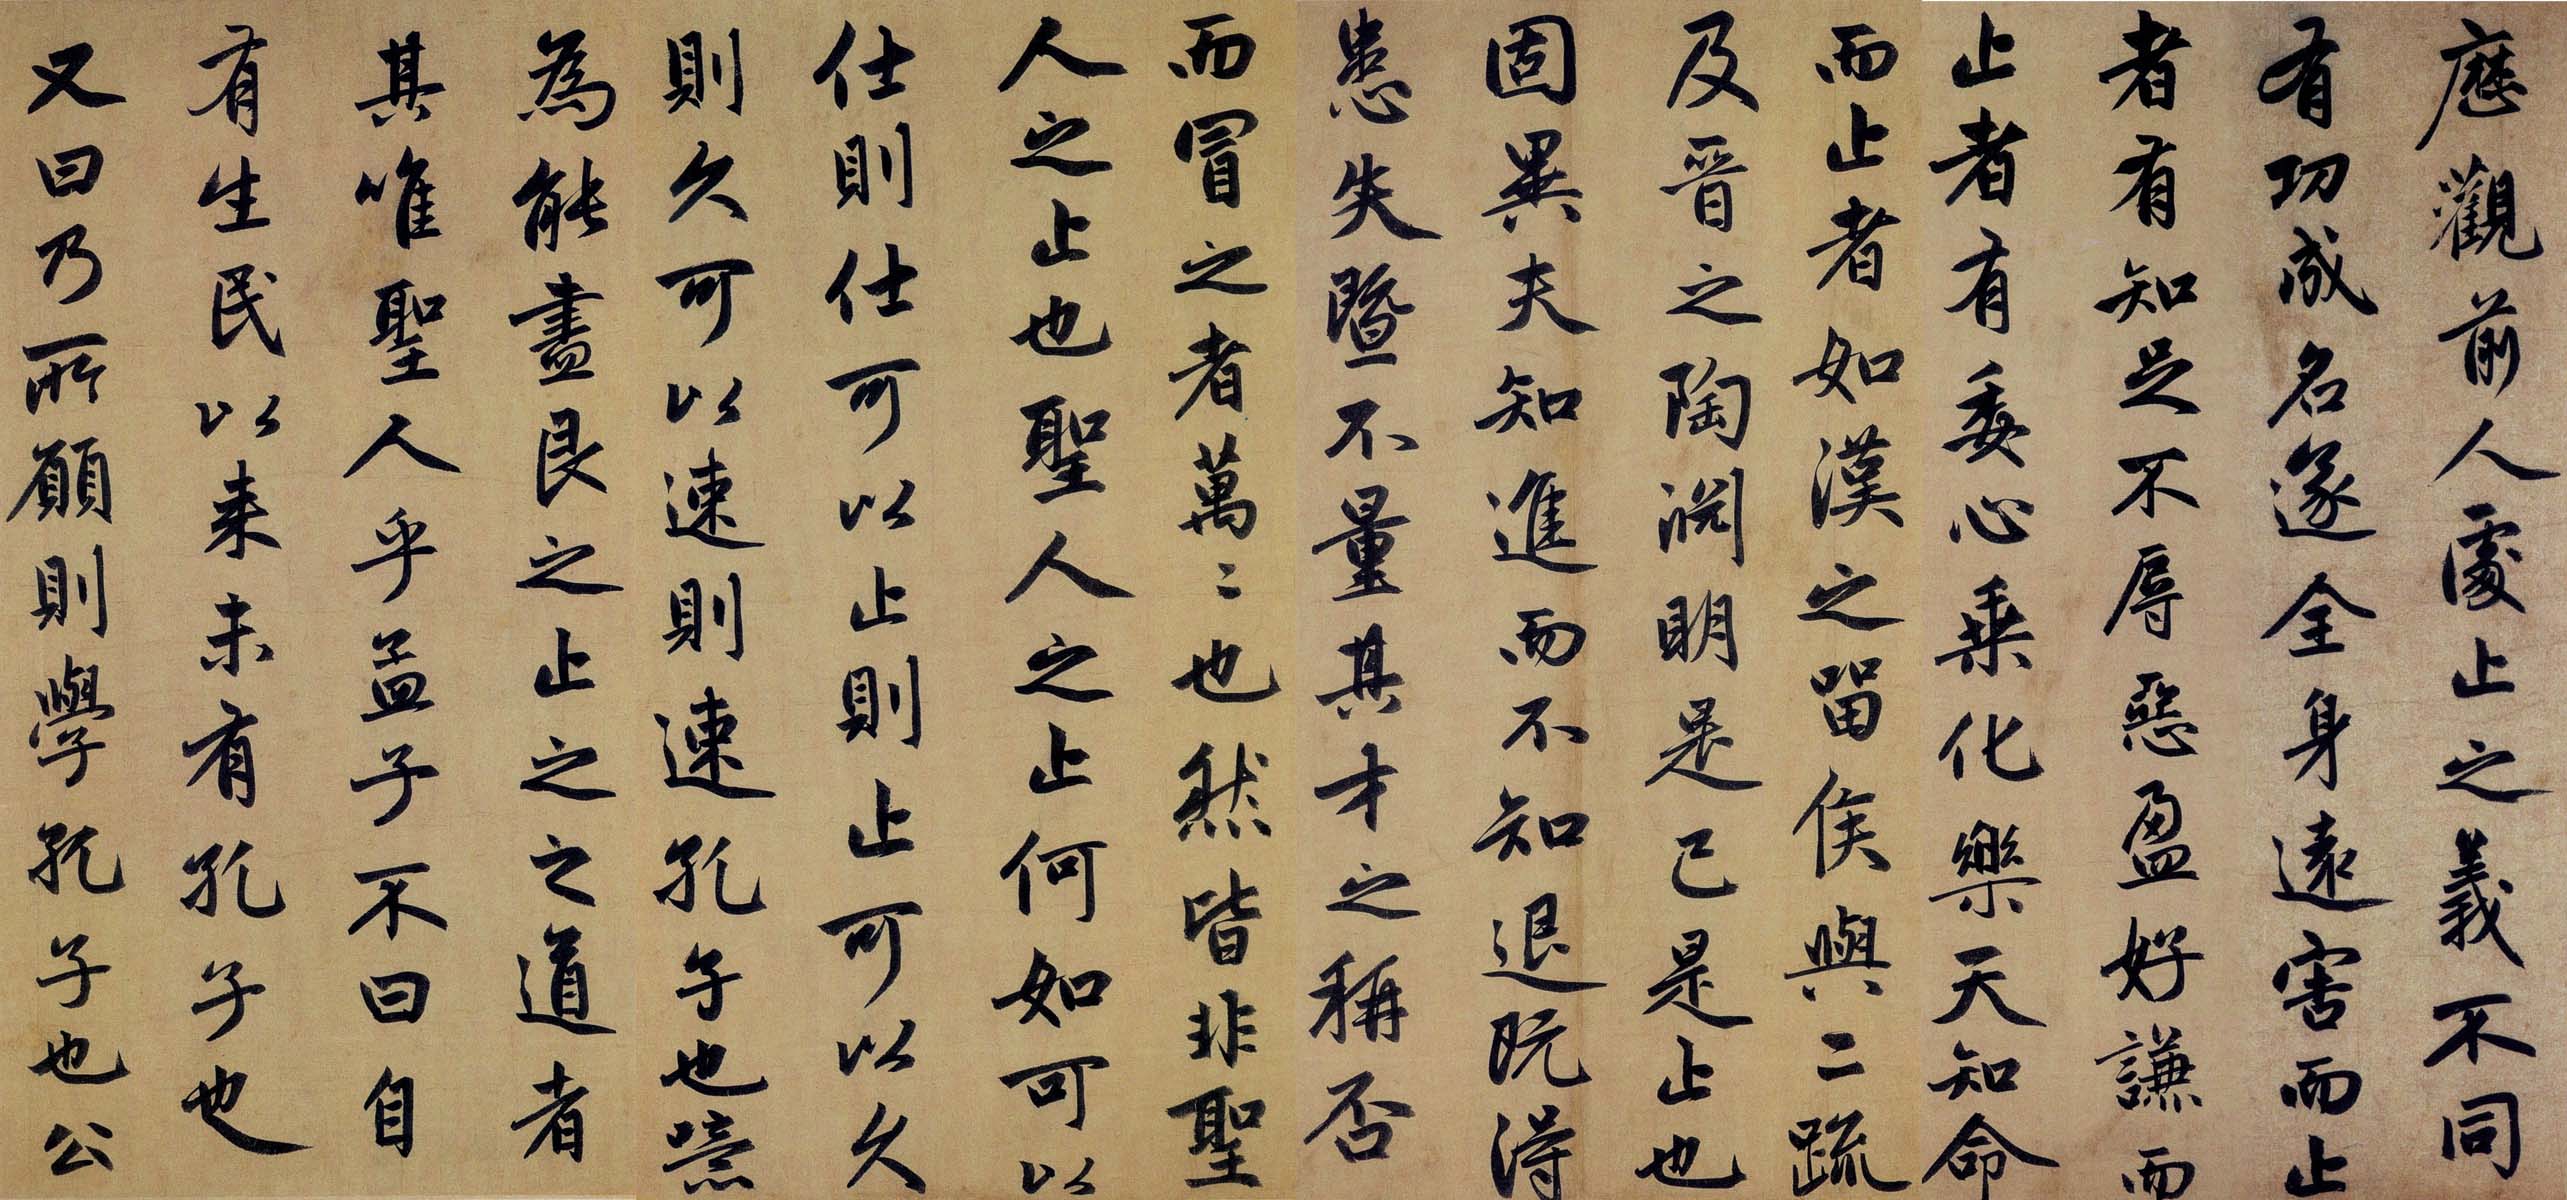 歷觀前人處止之義不同
有功成名遂全身遠害而止
者有知足不辱惡盈好謙而
止者有委心乗化樂天知命
而止者如漢之留侯與二疏
及晋之陶渊明是已是止也
固異夫知進而不知退既得
患失暨不量其才之稱否
而冒之者萬〻也然皆非聖
人之止也聖人之止何如可以
仕則仕可以止則止可以久
則久可以速則速孔子也噫
為能盡艮之止之之道者
其唯聖人乎孟子不曰自
有生民以来未有孔子也
又曰乃所願則學孔子也公